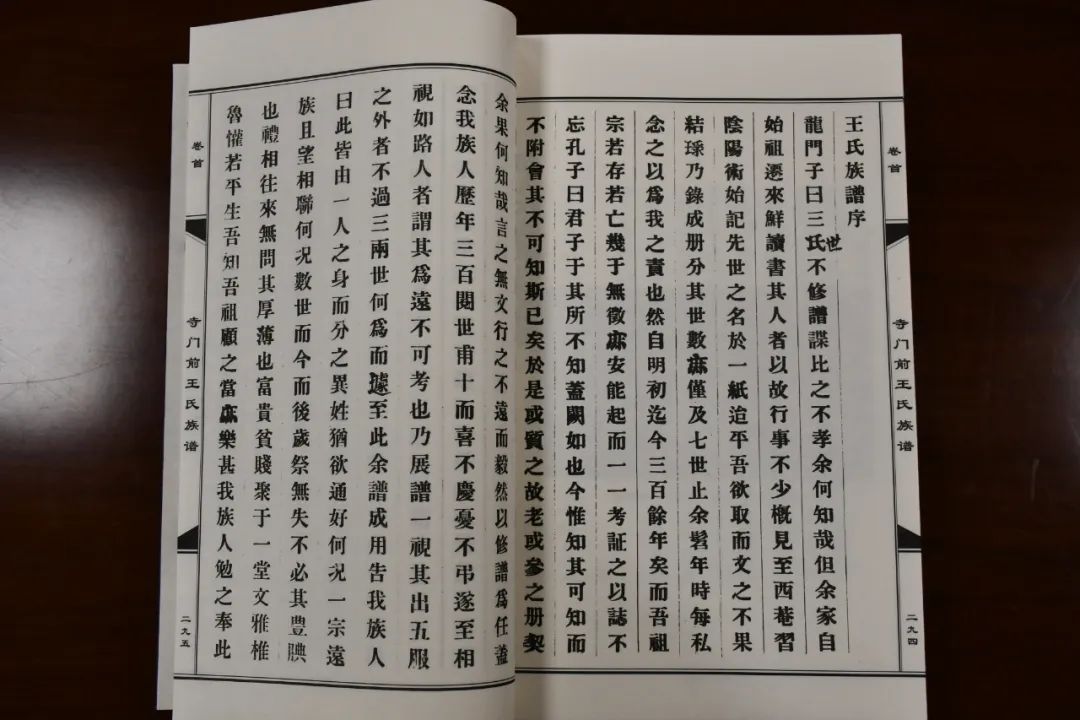 卷首
寺门前王氏族谱
二九四
王氏族譜序
龍門子曰三氏不修譜諜比之不孝余何知哉但余家自
世
始祖遷來鮮讀書其人者以故行事不少概見至西菴習
陰陽術始記先世之名於一紙迨平吾欲取而文之不果
結瑹乃錄成册分其世數庶僅及七世止余髫年時每私
念之以爲我之責也然自明初迄今三百餘年矣而吾祖
宗若存若亡幾于無徵庶安能起而一一考証之以誌不
忘孔子曰君子于其所不知蓋闕如也今惟知其可知而
不附會其不可知斯已矣於是或質之故老或參之册契
余果何知哉言之無文行之不遠而毅然以修譜爲任蓋
念我族人歷年三百閱世甫十而喜不慶憂不弔遂至相
視如路人者謂其爲遠不可考也乃展譜一視其出五服
之外者不過三兩世何爲而遽至此余譜成用告我族人
曰此皆由一人之身而分之異姓猶欲通好何况一宗遠
族且望相聯何况數世而今而後歲祭無失不必其豊腆
也禮相往來無問其厚薄也富貴貧賤聚于一堂文雅椎
魯懽若平生吾知吾祖顧之當庶樂甚我族人勉之奉此
卷首
寺门前王氏族谱
二九五